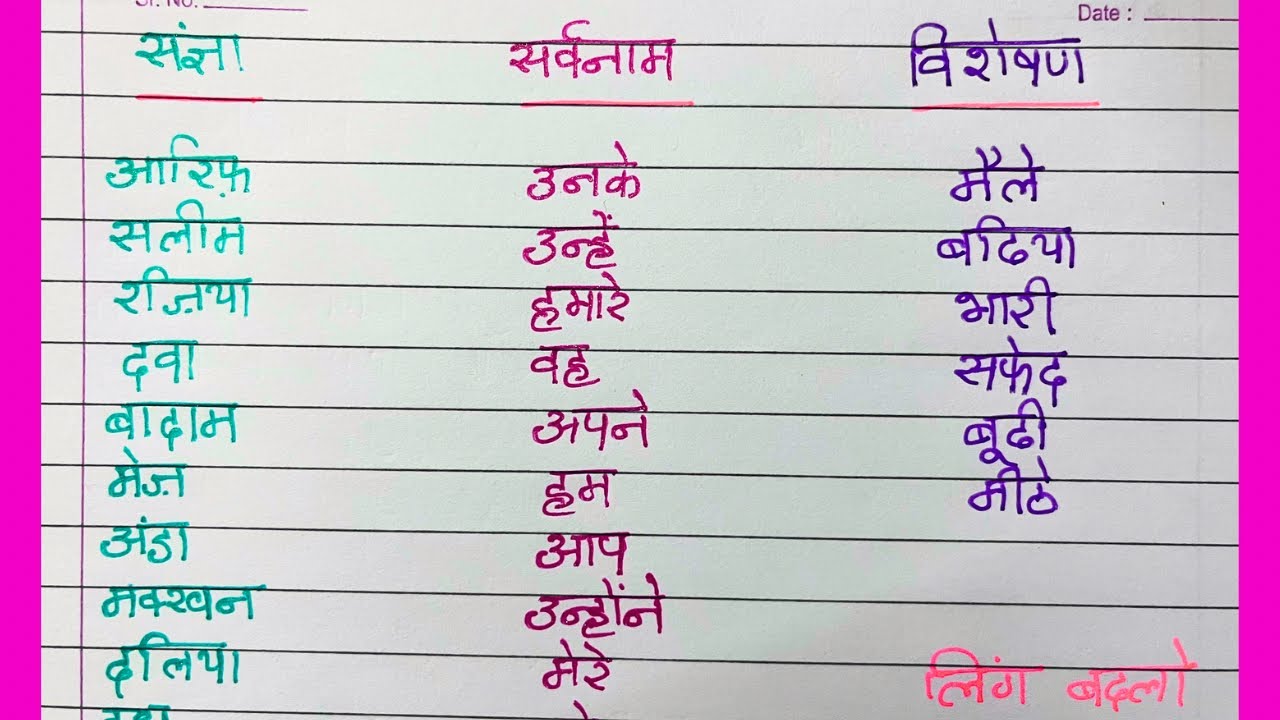 Date :
संज्ञा सर्वनाम विशेषण
आरिफ़ उनके मैले
सलीम उन्हें बढिया
रज़िया हमारे भारी
दवा वह सफेद
बादाम अपने बूढी
मेज़ हम मीठे
अंडा आप
मक्खन उन्होंने
दलिया मेरे लिंग बदलो